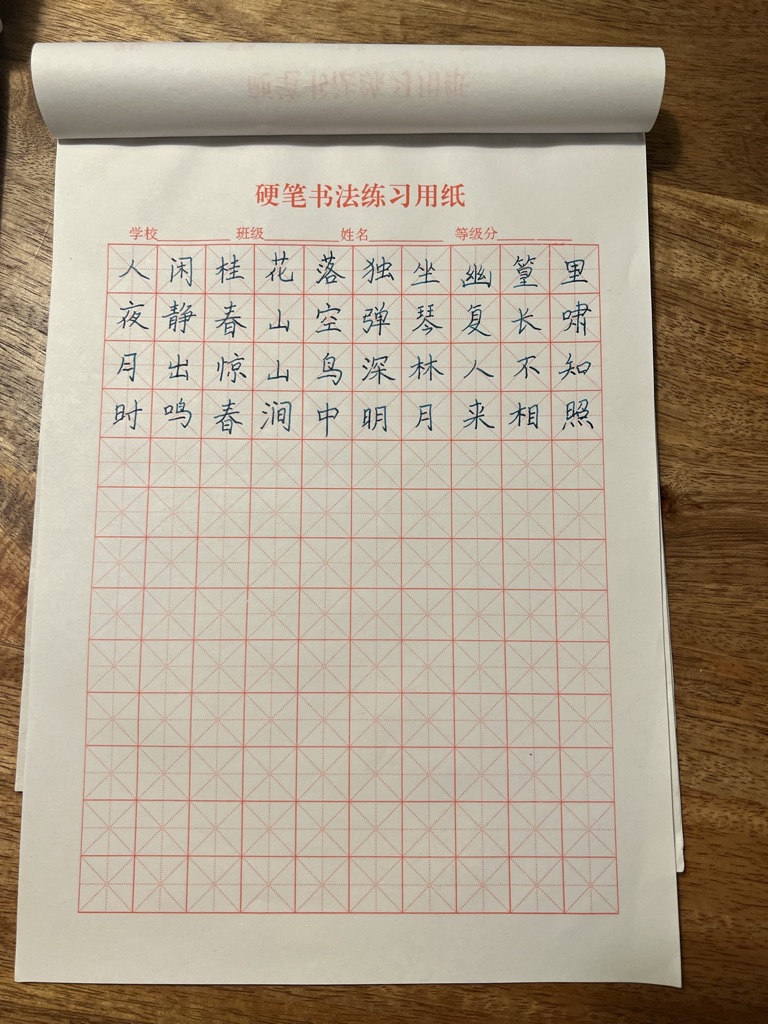 硬笔书法练习用纸
学校 班级 姓名 等级分
人闲桂花落独坐幽篁里
夜静春山空弹琴复长啸
月出惊山鸟深林人不知
时鸣春涧中明月来相照